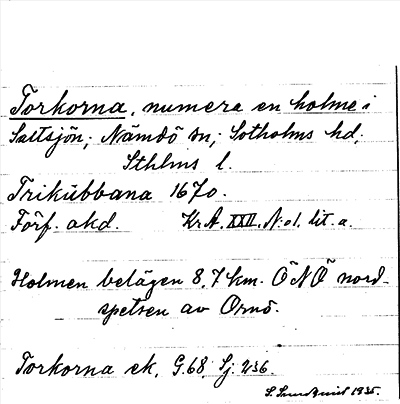 Torkorna, numera en holme i
Saltsjön; Nämdö sn; Sotholms hd;
Sthlms l.
Trikübbana 1670.
Förf. akd. Kr.A. XXII. N:o1. lit. a.
Holmen belägen 8,7 km. ÖNÖ nord-
spetsen av Ornö.
Torkorna ek. G.68, Sj. 236.
S. 1935.